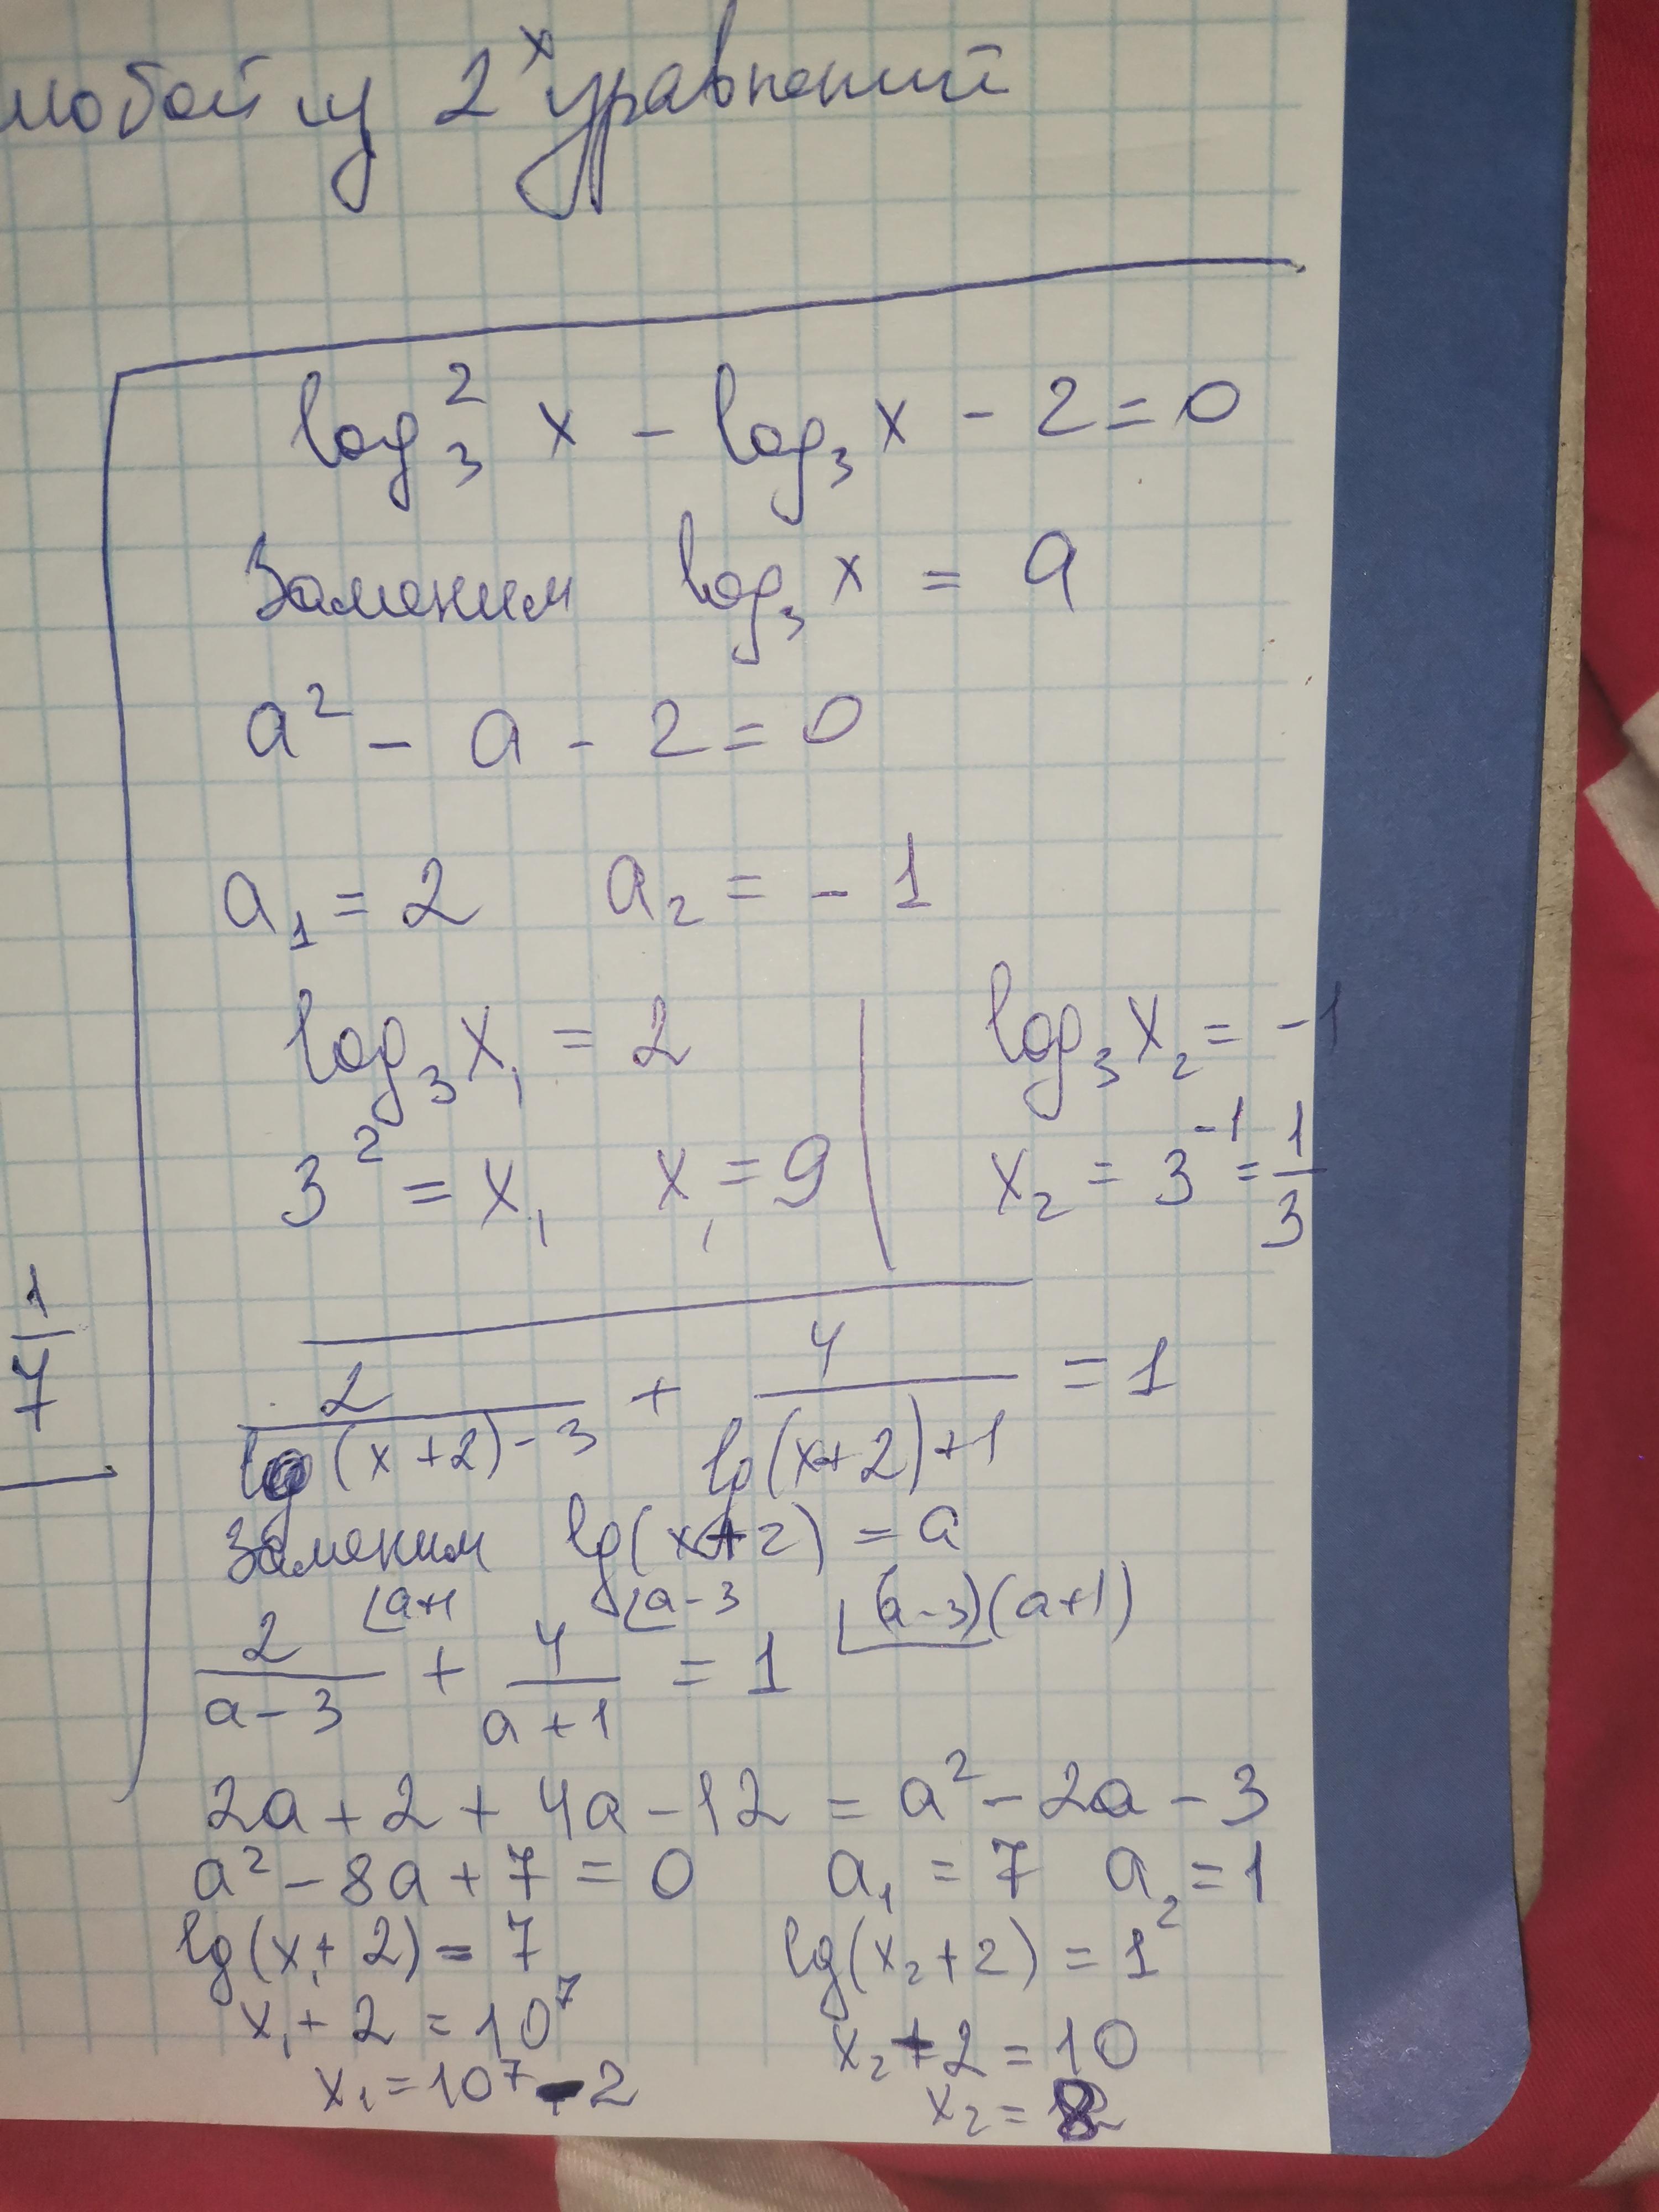 любой из 2ˣ уравнений
log₃² x - log₃ x - 2 = 0
Заменим log₃ x = a
a² - a - 2 = 0
a₁ = 2 a₂ = - 1
log₃ x₁ = 2 | log₃ x₂ = -1
3² = x₁ x₁ = 9 | x₂ = 3⁻¹ = 1/3
1/7
2/(lg(x+2)-3) + 4/(lg(x+2)+1) = 1
Заменим lg(x+2) = a
2/(a-3) ⌊a+1 + 4/(a+1) ⌊a-3 = 1 ⌊(a-3)(a+1)
2a + 2 + 4a - 12 = a² - 2a - 3
a² - 8a + 7 = 0 a₁ = 7 a₂ = 1
lg(x₁+2) = 7 lg(x₂+2) = 1
x₁ + 2 = 10⁷ x₂ + 2 = 10
x₁ = 10⁷ - 2 x₂ = 8